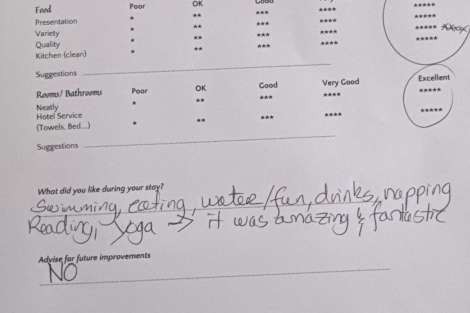 Food Poor OK Good
Presentation * ** *** **** *****
Variety * ** *** **** *****
Quality * ** *** **** *****
Kitchen (clean) * ** *** **** *****
Suggestions
Rooms/ Bathrooms Poor OK Good Very Good Excellent
Neatly * ** *** **** *****
Hotel Service
(Towels, Bed...) * ** *** **** *****
Suggestions
What did you like during your stay?
Swimming, eating, water/fun, drinks, napping
Reading, yoga → it was amazing & fantastic
Advise for future improvements
NO